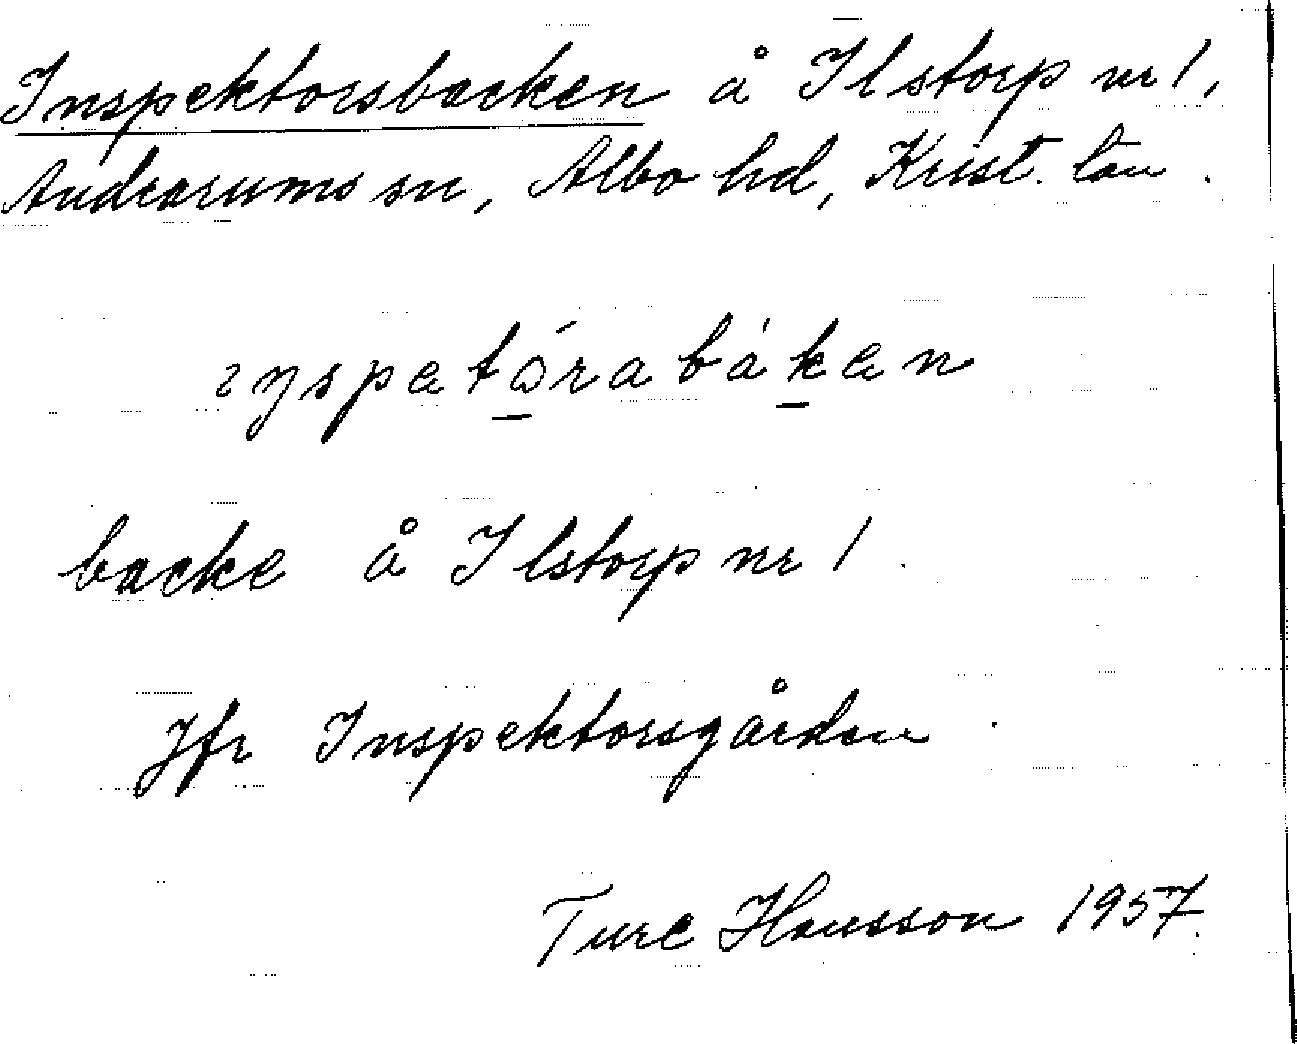 Inspektorsbacken å Ilstorp nr 1,
Andrarums sn, Albo hd, Krist. län.
backe å Ilstorp nr 1.
Jfr Inspektorsgården.
Ture Hansson 1957.